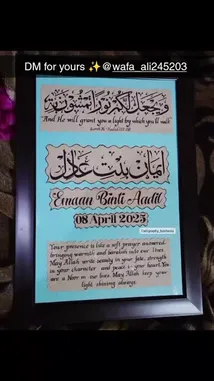 DM for yours ✨@wafa_ali245203
وَيَجْعَل لَّكُمْ نُورًا تَمْشُونَ بِهِ
"And He will grant you a light by which you'll walk"
ایمان بنت عادل
Emaan Binti Aadil
08 April 2025
Your presence is like a soft prayer answered.
bringing warmth and barakah into our lives.
May Allah write beauty in your fate, strength
in your character and peace in your heart. You
are a Noor in our lives. May Allah keep your
light shining always.